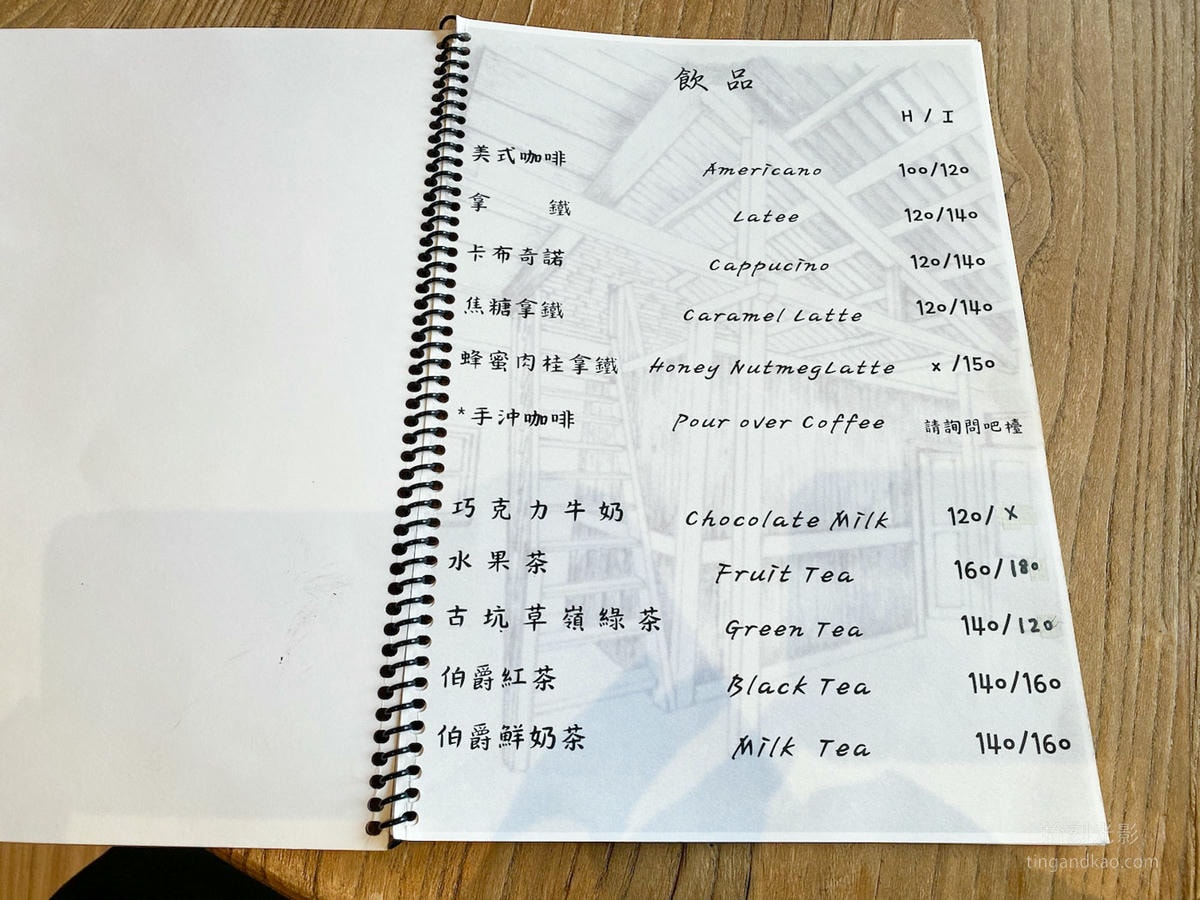 飲品
H / I
美式咖啡 Americano 100/120
拿鐵 Latee 120/140
卡布奇諾 Cappucino 120/140
焦糖拿鐵 Caramel Latte 120/140
蜂蜜肉桂拿鐵 Honey NutmegLatte x /150
*手沖咖啡 Pour over Coffee 請詢問吧檯
巧克力牛奶 Chocolate Milk 120/ X
水果茶 Fruit Tea 160/180
古坑草嶺綠茶 Green Tea 140/120
伯爵紅茶 Black Tea 140/160
伯爵鮮奶茶 Milk Tea 140/160
tingandkao.com